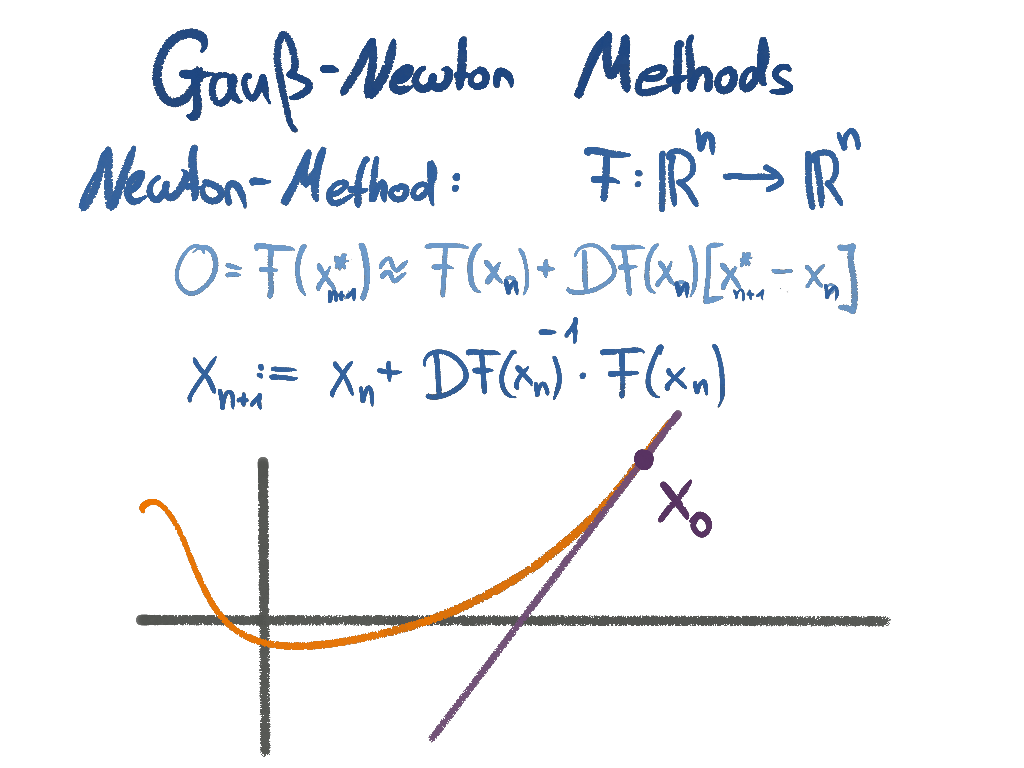 Gauß-Newton Methods
Newton-Method: F: ℝⁿ → ℝⁿ
0 = F(x*ₙ₊₁) ≈ F(xₙ) + DF(xₙ)[x*ₙ₊₁ - xₙ]
xₙ₊₁ := xₙ + DF(xₙ)⁻¹ · F(xₙ)
x₀